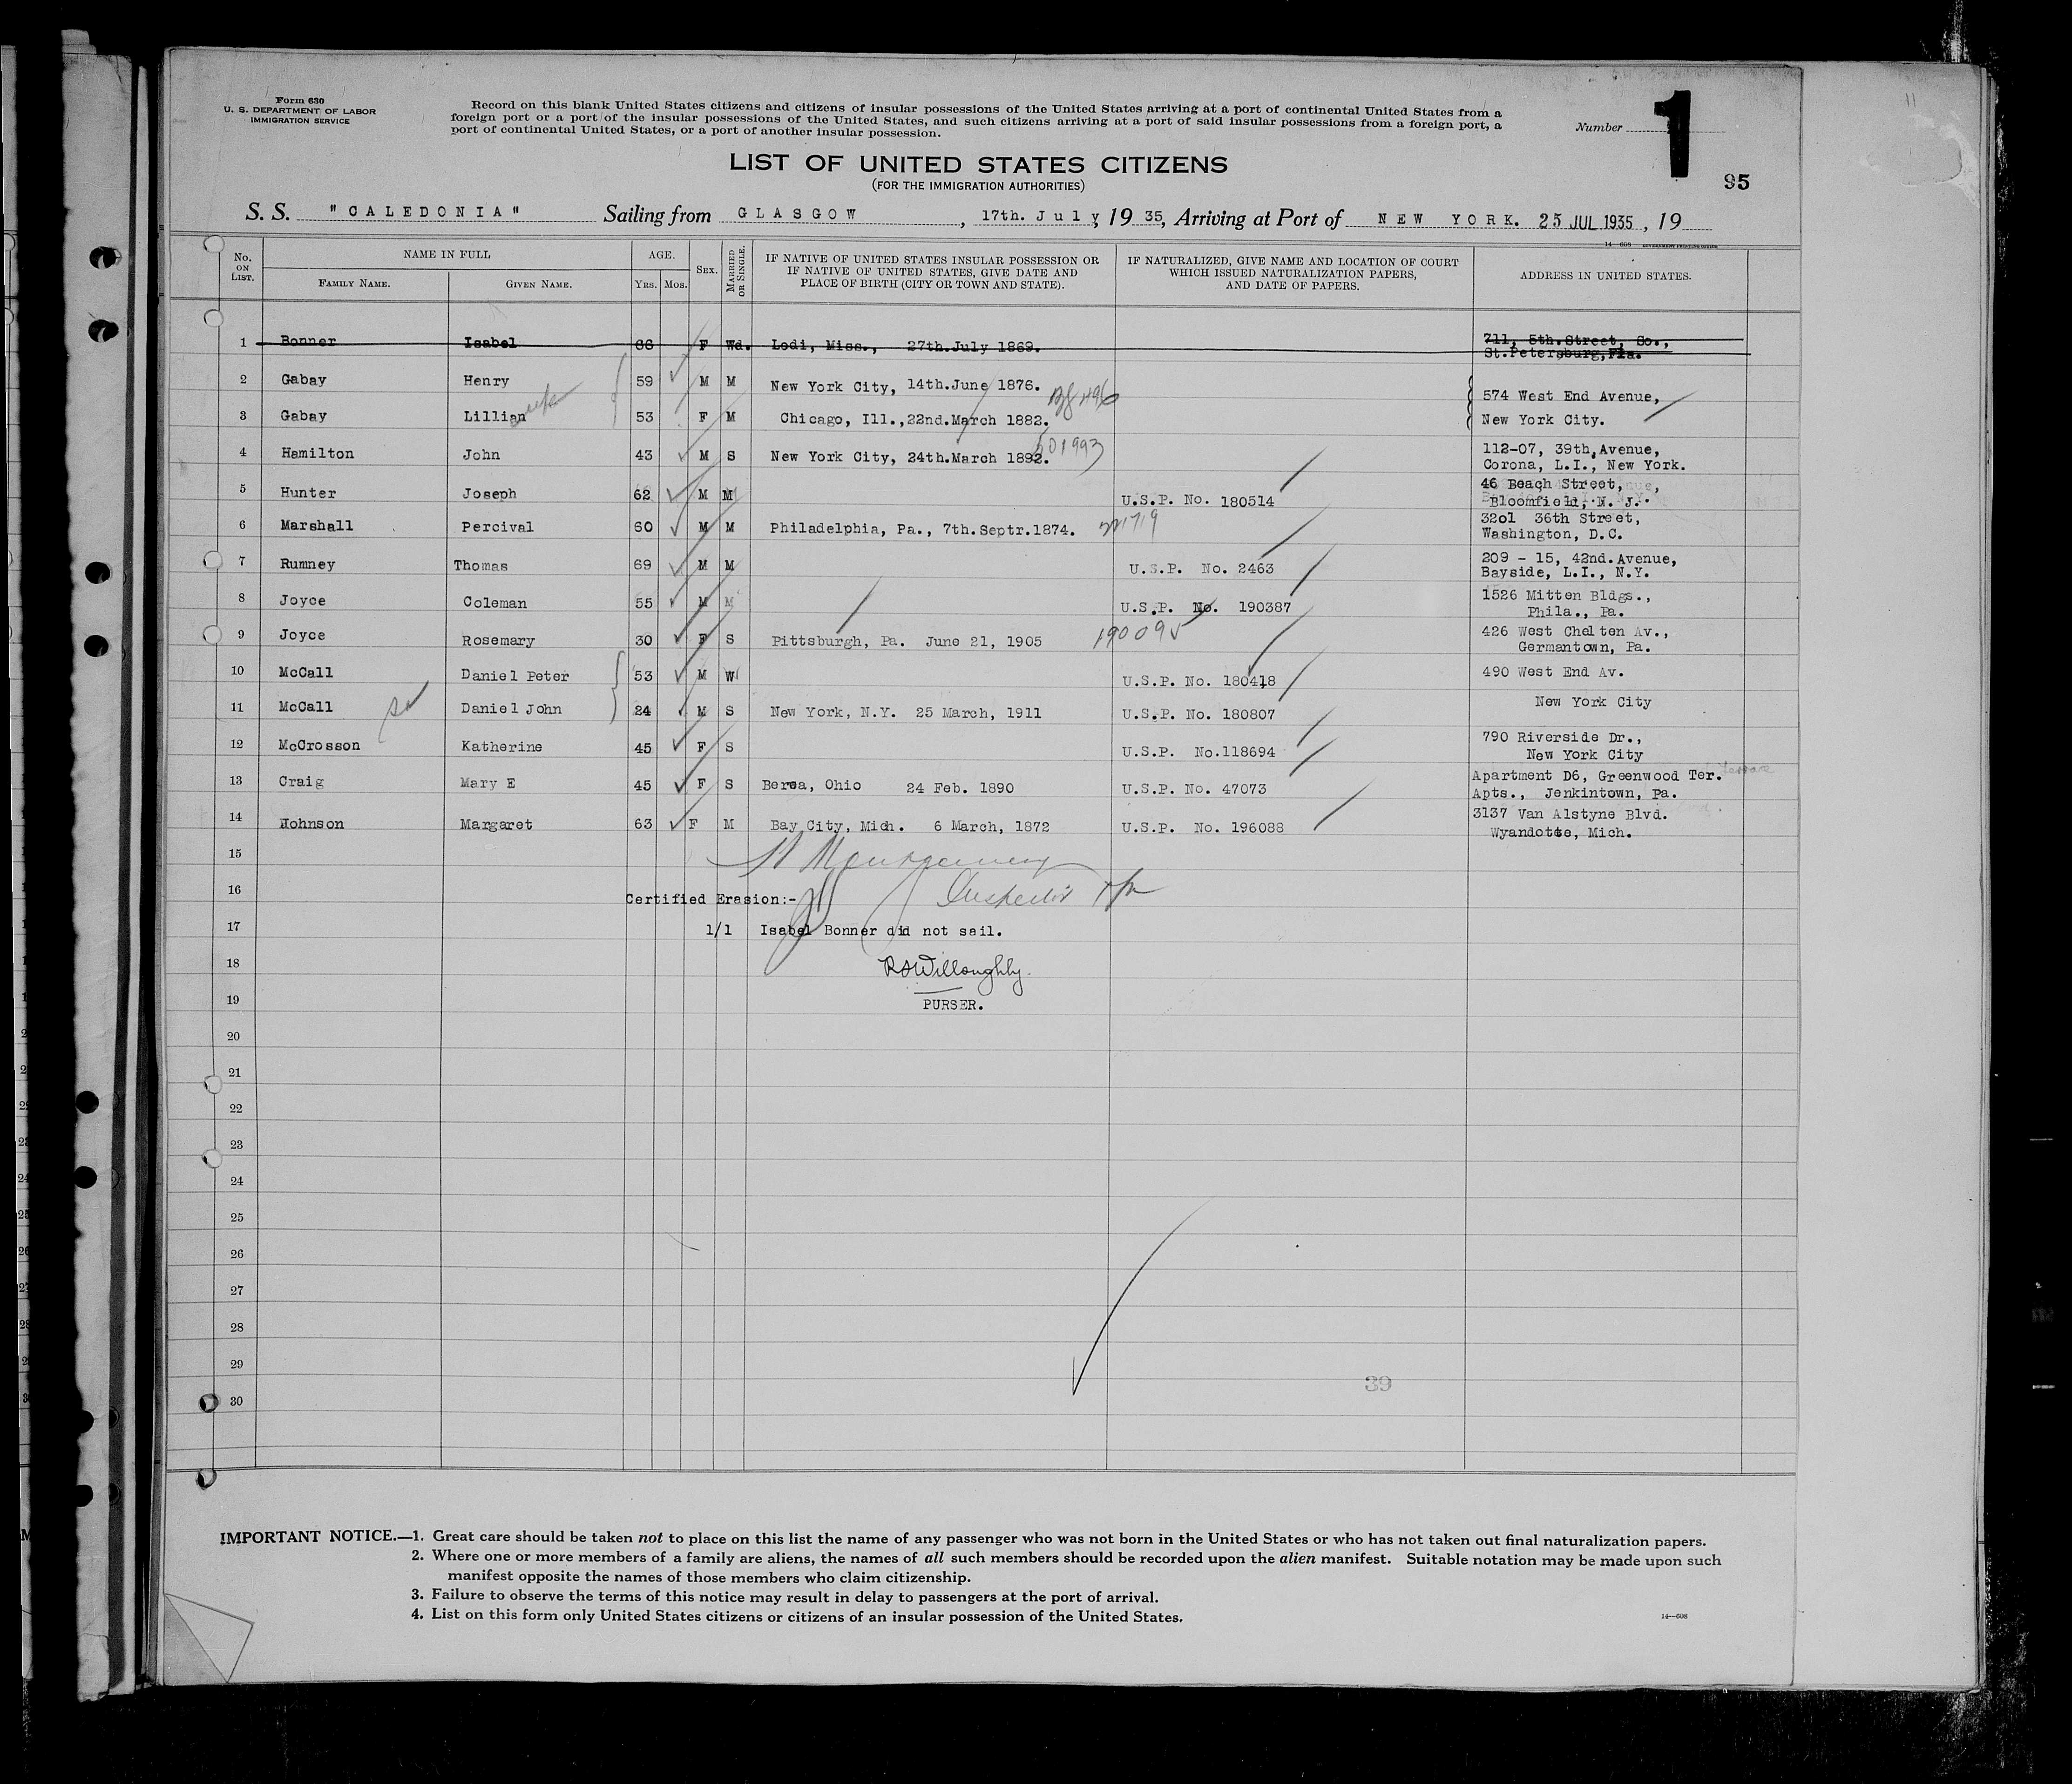 Form 630
U. S. DEPARTMENT OF LABOR
IMMIGRATION SERVICE
Record on this blank United States citizens and citizens of insular possessions of the United States arriving at a port of continental United States from a
foreign port or a port of the insular possessions of the United States, and such citizens arriving at a port of said insular possessions from a foreign port, a
port of continental United States, or a port of another insular possession.
Number 1
95
LIST OF UNITED STATES CITIZENS
(FOR THE IMMIGRATION AUTHORITIES)
S. S. "CALEDONIA" Sailing from GLASGOW, 17th. July, 19 35, Arriving at Port of NEW YORK. 25 JUL 1935, 19
14—608 GOVERNMENT PRINTING OFFICE
No. ON LIST. NAME IN FULL AGE. SEX. MARRIED OR SINGLE. IF NATIVE OF UNITED STATES INSULAR POSSESSION OR IF NATIVE OF UNITED STATES, GIVE DATE AND PLACE OF BIRTH (CITY OR TOWN AND STATE). IF NATURALIZED, GIVE NAME AND LOCATION OF COURT WHICH ISSUED NATURALIZATION PAPERS, AND DATE OF PAPERS. ADDRESS IN UNITED STATES.
FAMILY NAME. GIVEN NAME. Yrs. Mos.
1 Bonner Isabel 66 F Wd. Lodi, Miss., 27th.July 1869. 711, 5th.Street, So., St.Petersburg,Fla.
2 Gabay Henry 59 M M New York City, 14th.June 1876. 574 West End Avenue,
3 Gabay Lillian wife 53 F M Chicago, Ill.,22nd.March 1882. New York City.
4 Hamilton John 43 M S New York City, 24th.March 1892. 501993 112-07, 39th,Avenue, Corona, L.I., New York.
5 Hunter Joseph 62 M M U.S.P. No. 180514 46 Beach Street, Bloomfield, N. J.
6 Marshall Percival 60 M M Philadelphia, Pa., 7th.Septr.1874. 3201 36th Street, Washington, D.C.
7 Rumney Thomas 69 M M U.S.P. No. 2463 209 - 15, 42nd.Avenue, Bayside, L.I., N.Y.
8 Joyce Coleman 55 M M U.S.P. No. 190387 1526 Mitten Bldgs., Phila., Pa.
9 Joyce Rosemary 30 F S Pittsburgh, Pa. June 21, 1905 190095 426 West Chelten Av., Germantown, Pa.
10 McCall Daniel Peter 53 M W U.S.P. No. 180418 490 West End Av.
11 McCall Daniel John 24 M S New York, N.Y. 25 March, 1911 U.S.P. No. 180807 New York City
12 McCrosson Katherine 45 F S U.S.P. No.118694 790 Riverside Dr., New York City
13 Craig Mary E 45 F S Berea, Ohio 24 Feb. 1890 U.S.P. No. 47073 Apartment D6, Greenwood Ter. Terrace Apts., Jenkintown, Pa.
14 Johnson Margaret 63 F M Bay City, Mich. 6 March, 1872 U.S.P. No. 196088 3137 Van Alstyne Blvd. Wyandotte, Mich.
15 Montgomery
16 Certified Erasion:- Inspector
17 1/1 Isabel Bonner did not sail.
18 RSWilloughby.
19 PURSER.
20
21
22
23
24
25
26
27
28
29
39
30
IMPORTANT NOTICE.—1. Great care should be taken not to place on this list the name of any passenger who was not born in the United States or who has not taken out final naturalization papers.
2. Where one or more members of a family are aliens, the names of all such members should be recorded upon the alien manifest. Suitable notation may be made upon such
manifest opposite the names of those members who claim citizenship.
3. Failure to observe the terms of this notice may result in delay to passengers at the port of arrival.
4. List on this form only United States citizens or citizens of an insular possession of the United States.
14—608